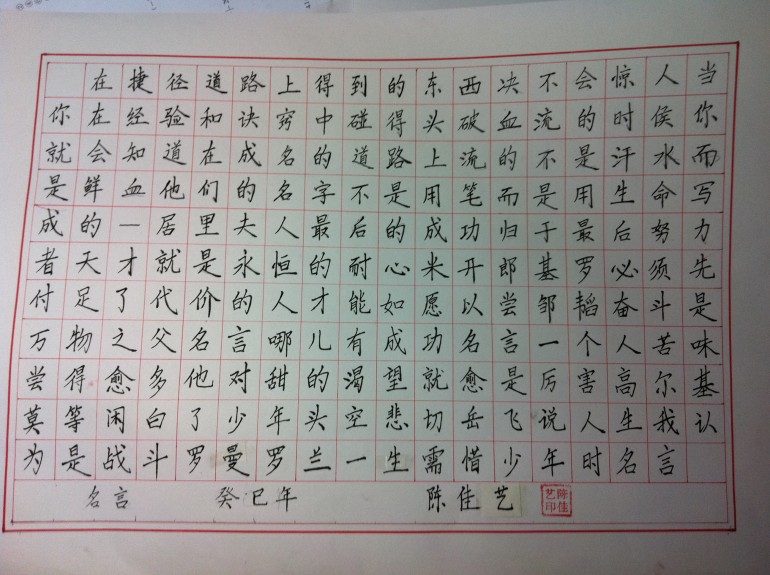 在捷径道路上得到的东西决不会惊人当
你在经验和诀窍中碰得头破血流的时侯你
就会知道在成名的道路上流的不是汗水而
是鲜血他们的名字不是用笔而是用生命写
成的一居里夫人最后的成功归于最后努力
者天才就是永恒的耐心米开郎基罗必须先
付足了代价的人才能如愿以尝邹韬奋斗是
万物之父名言哪儿有成功名言一个人苦味
尝得愈多他对甜的渴望就愈是厉害高尔基
莫等闲白了少年头空悲切岳飞说人生我认
为是战斗罗曼罗兰一生需惜少年时名言
名言 癸巳年 陈佳艺
陈佳艺印